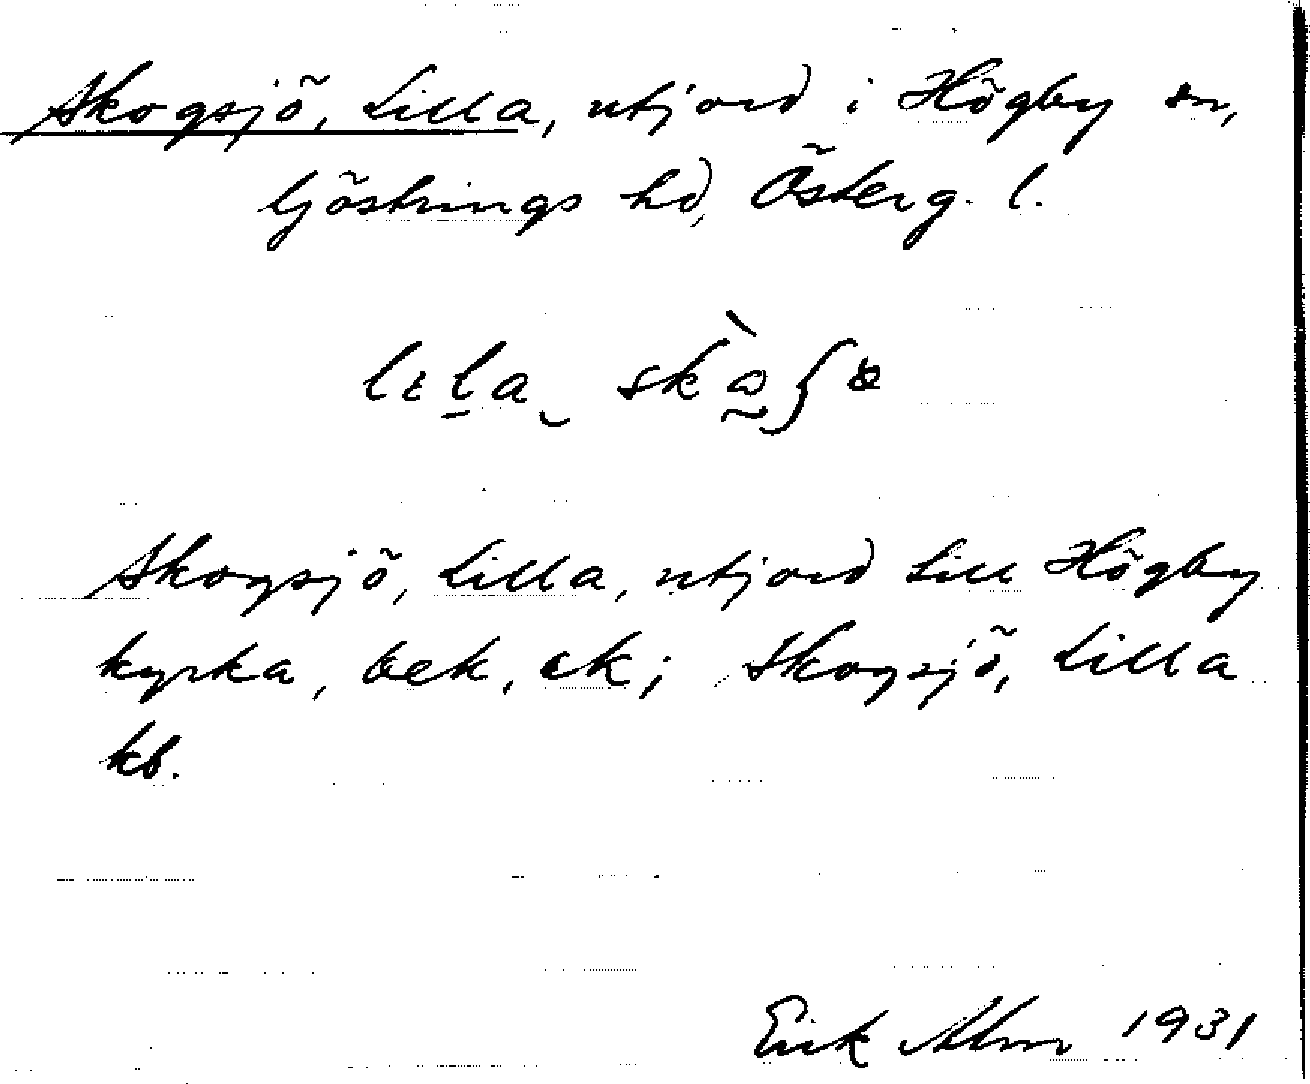 Skogsjö, Lilla, utjord i Högby sn,
Göstrings hd, Österg. l.
Skogsjö, Lilla, utjord till Högby
kyrka, oek, ek; Skogsjö, Lilla
kb.
Erik Alm 1931